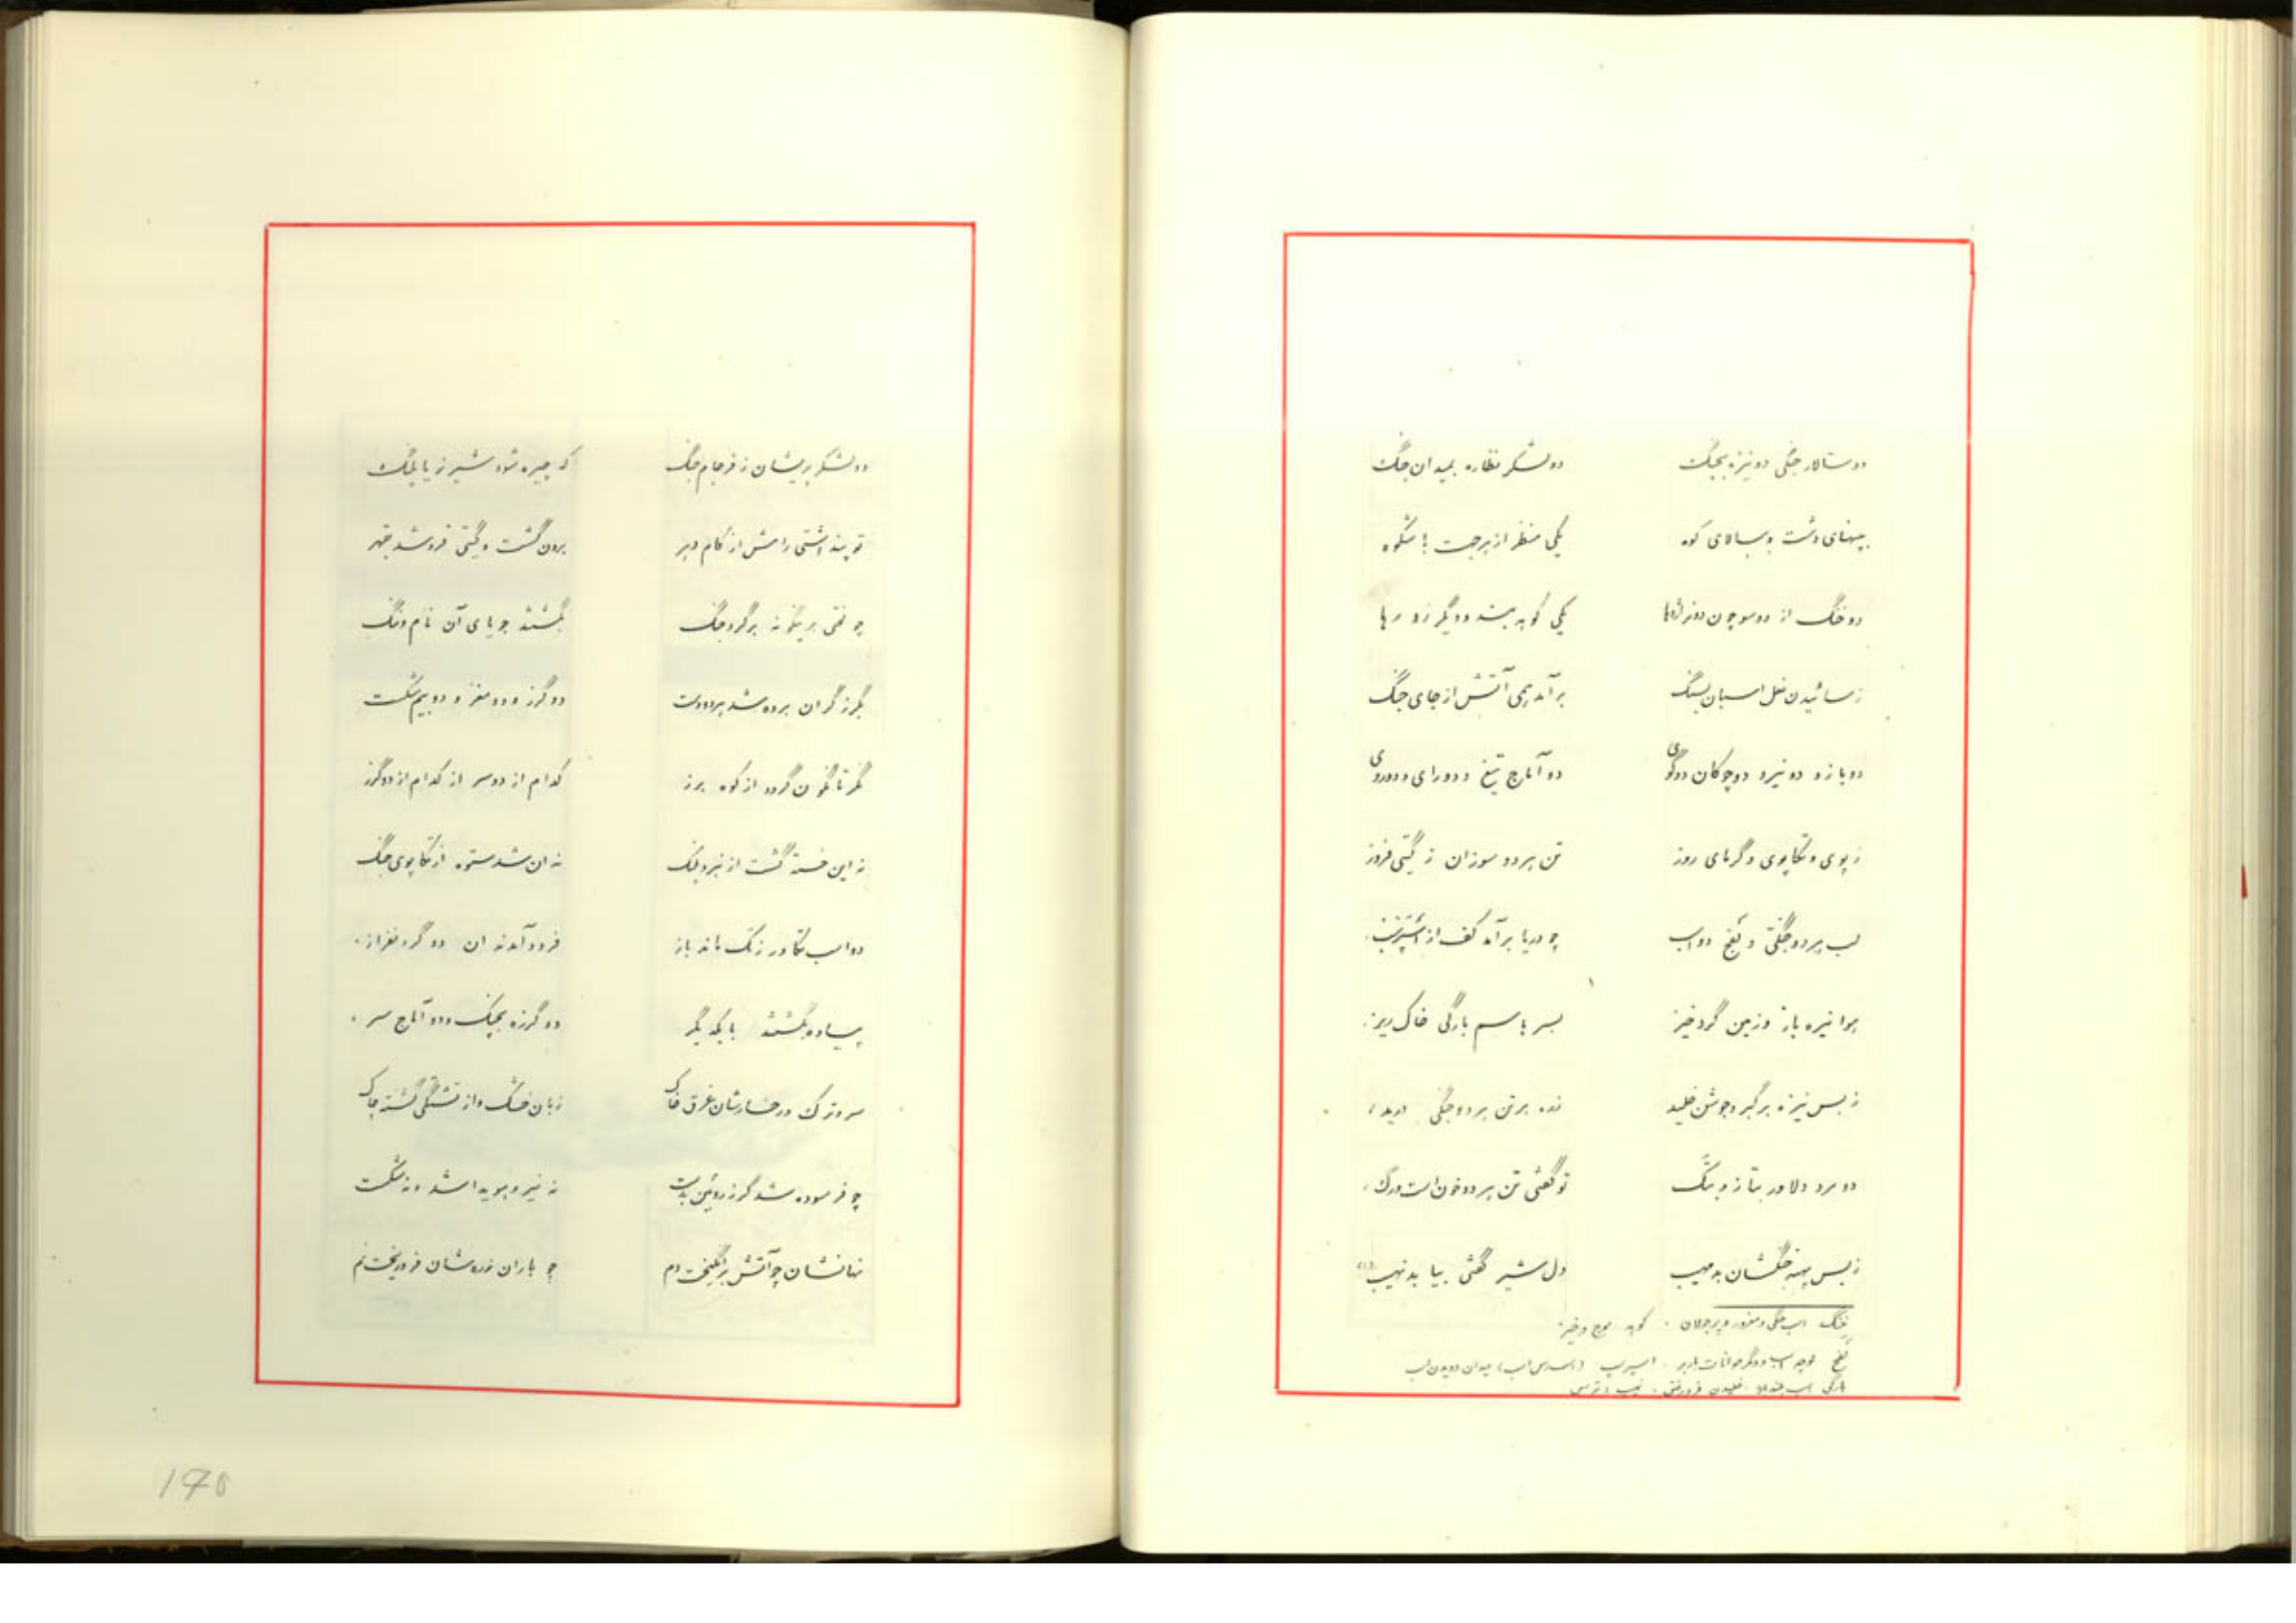 دو سالار جنگی دو نیزه بچنگ دو لشکر نظاره بمیدان جنگ
بپهنای دشت و ببالای کوه یکی منظر از برجست با شکوه
دو خنگ از دو سو چون دو نر اژدها یکی کوبه بیند و دیگر زو رها
ز سائیدن نعل اسبان بسنگ برآمد همی آتش از جای جنگ
دو بازو دو نیرو دو چوگان دو گوی دو آماج تیغ و دو رای و دو روی
ز پوی و تکاپوی و گرمای روز تن هر دو سوزان ز گیتی فروز
لب هر دو جنگی و کفج دو اسب چو دریا برآمد کف از
هوا نیزه باز و زمین گرد خیز بسر با سم بارگی خاک ریز
ز بس نیزه بر گبر و جوشن خلید زره بر تن هر دو جنگی درید
دو مرد دلاور بتاز و بتگ تو گفتی تن هر دو خون است و رگ
ز بس پهنه جنگشان بد مهیب دل شیر گفتی بیا بد نهیب (۱)
خنگ اسب جنگی و مغرور و پرجولان . کوبه موج و خیز
کفج لوچه اسب و دیگر حیوانات باربر . اسپرپ (اسپرس اسب) میدان دویدن اسب
بارگی اسب . خلیدن فرو رفتن . نهیب ترس
دو لشکر پریشان ز فرجام جنگ که چیره شود شیر نر یا پلنگ
تو پنداشتی رامش از کام دهر برون گشت و گیتی فرو شد بقهر
چو لختی برینگونه بر گرد جنگ بگشتند جویای آن نام و ننگ
بگرز گران برده شد هر دو دست دو گرز و دو مغز و دو بیم شکست
مگر تا نگون گردد از کوه برز کدام از دو سر از کدام از دو گرز
نه این خسته گشت از نبرد پلنگ نه آن شد ستوه از تکاپوی جنگ
دو اسب تکاور ز تک ماند باز فرود آمدند آن دو گردنفراز
پیاده بگشتند با یکدیگر دو گرزه بچنگ و دو آماج سر
سر و ترک و رخسارشان غرق خاک زبان خشک و از تشنگی گشته چاک
چو فرسوده شد گرز روئین بدست نه نیرو هویدا شد و نه شکست
میانشان چو آتش برانگیخت دم چو باران زره شان فرو ریخت نم